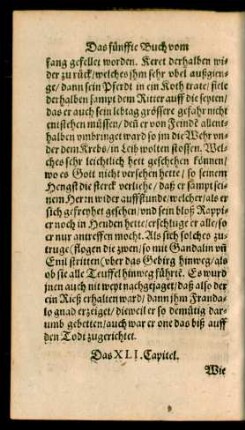 Das fünffte Buch vom
fang gefellet worden. Keret derhalben wi-
der zu rück/welches jhm sehr vbel außgien-
ge/dann sein Pferdt in ein Koth trate/fiele
derhalben sampt dem Ritter auff die seyten/
das er auch sein lebtag grössere gefahr nicht
entstehen müssen/deñ er von Feindẽ allent-
halben vmbringet ward so jm die Wehr vn-
der dem Krebs/in Leib wolten stossen. Wel-
ches sehr leichtlich hett geschehen können/
wo es Gott nicht versehen hette/so seinem
Hengst die sterck verliehe/daß er sampt sei-
nem Herrn wider auffstunde/welcher/als er
sich gefreyhet gesehen/vnd sein bloß Rappi-
er noch in Henden hette/erschluge er alle/so
er nur antreffen mocht. Als sich solches zu-
truge/flogen die zwen/so mit Gandalin vñ
Enil stritten/vber das Gebirg hinweg/als
ob sie alle Teuffel hinweg führtẽ. Es wurd
jnen auch nit weyt nachgejaget/daß also der
ein Rieß erhalten ward/dann jhm Franda-
lo gnad erzeiget/dieweil er so demütig dar-
umb gebetten/auch war er one das biß auff
den Todt zugerichtet.
Das XLI. Capitel.
Wie